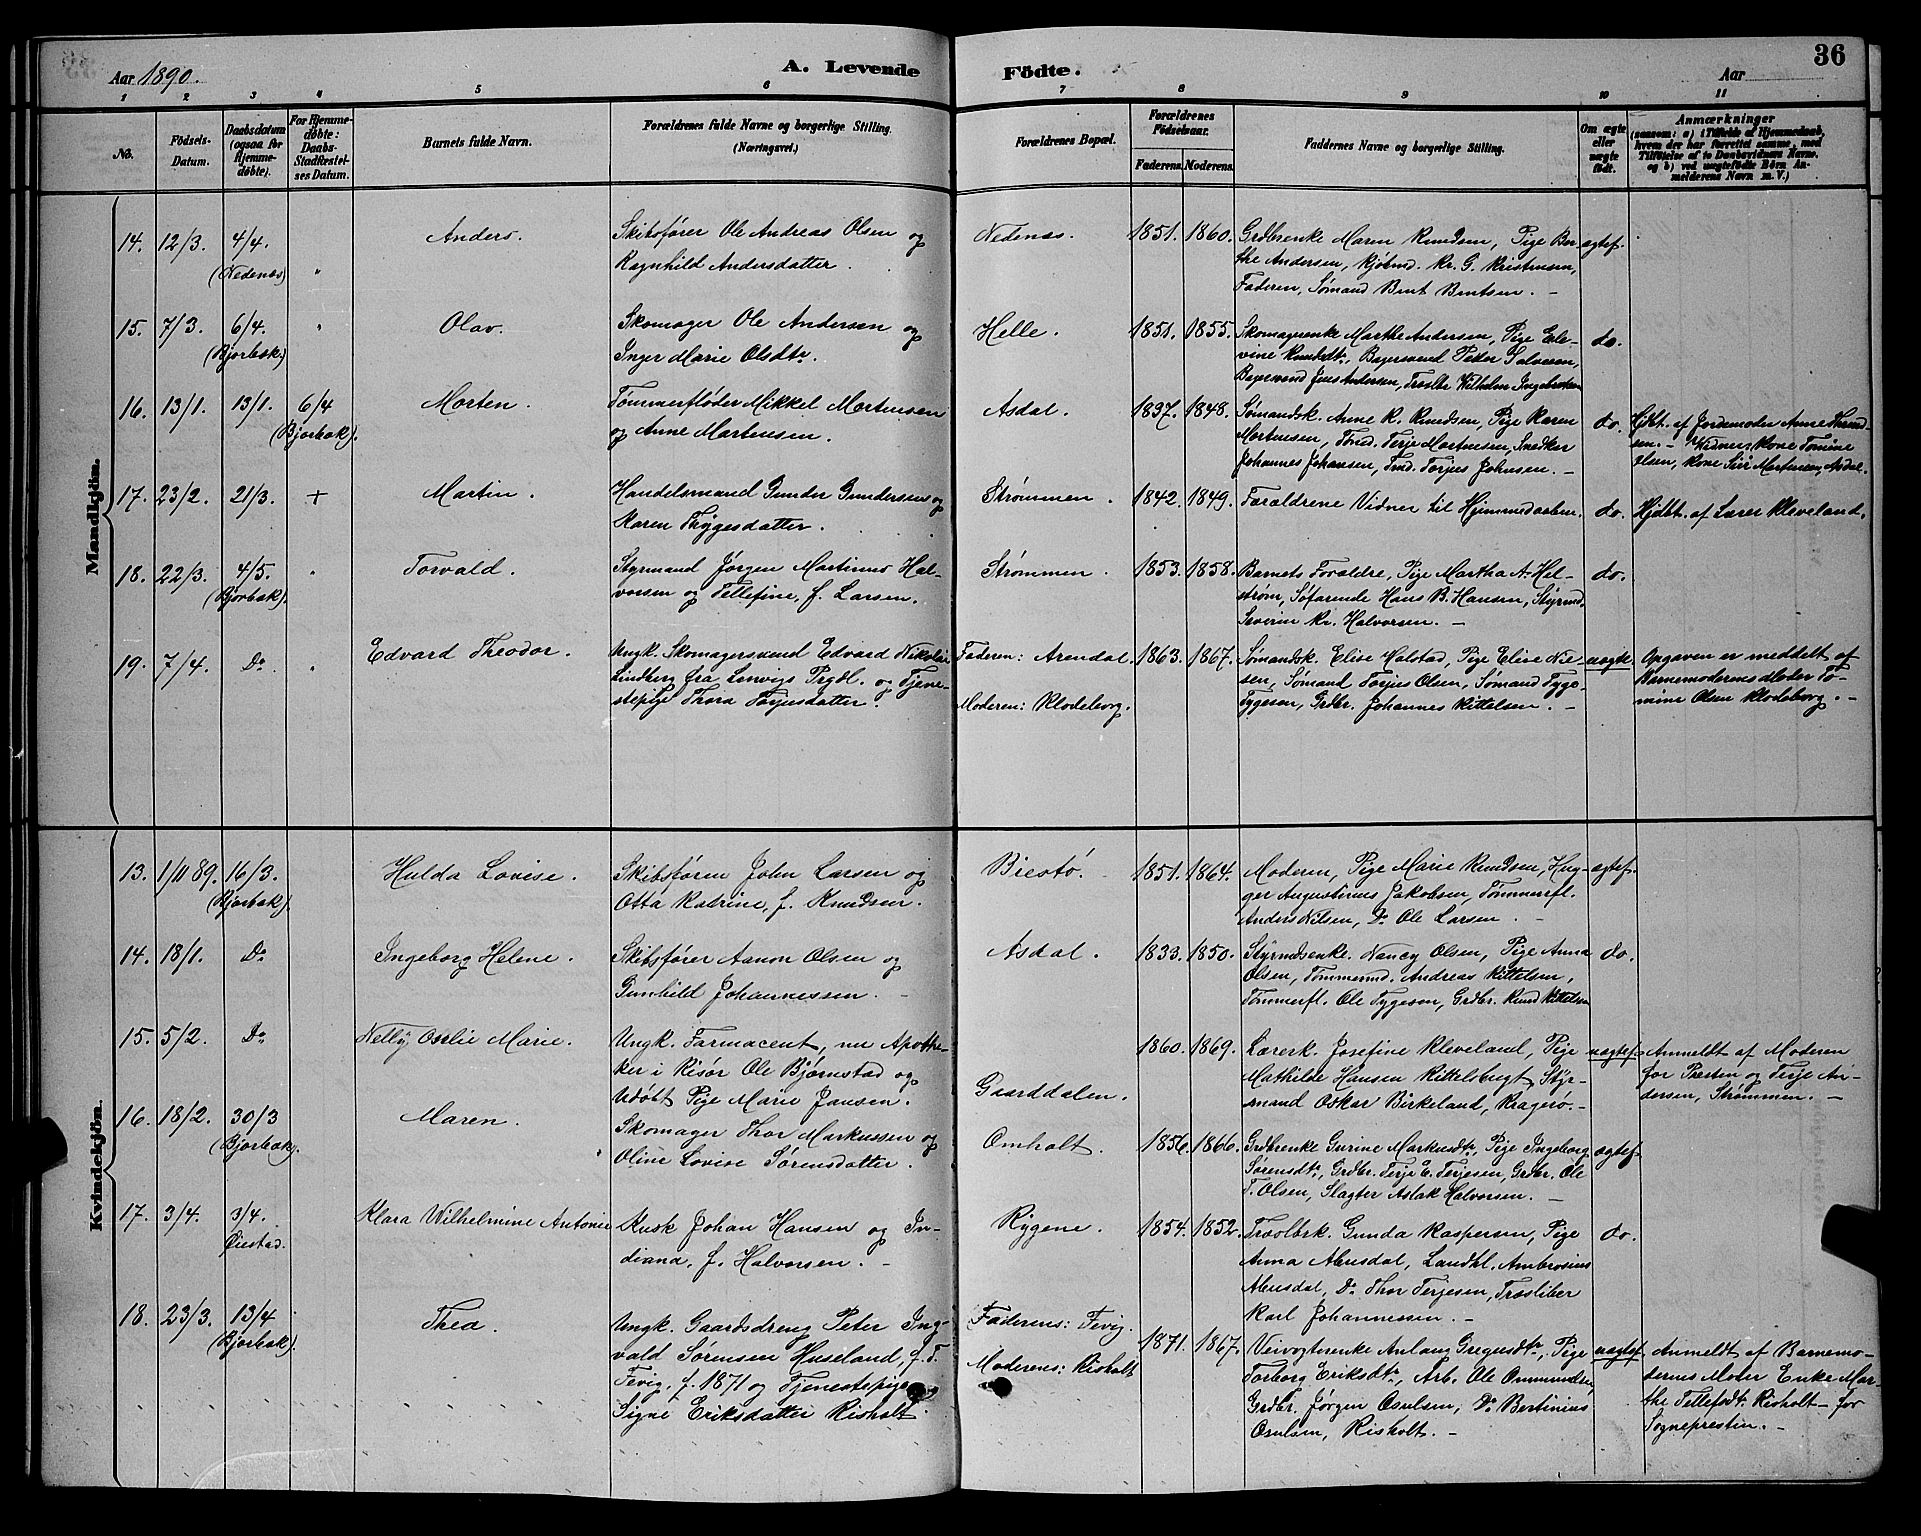 36
Aar 1890.
A. Levende
Födte.
Aar
1 2 3 4 5 6 7 8 9 10 11
No.
Födsels-
Datum.
Daabsdatum
(ogsaa for
Hjemme-
døbte).
For Hjemme-
døbte:
Daabs-
Stadfæstel-
ses Datum.
Barnets fulde Navn.
Forældrenes fulde Navne og borgerlige Stilling.
(Næringsvei.)
Forældrenes Bopæl.
Forældrenes
Födselsaar.
Faderens. Moderens.
Faddernes Navne og borgerlige Stilling.
Om ægte
eller
uægte
født.
Anmærkninger
(saasom: a) i Tilfælde af Hjemmedaab,
hvem der har forrettet samme, med
Tilföielse af to Daabsvidners Navne,
og b) ved uægtefödte Börn An-
melderens Navn m. V.)
Mandkjön.
14. 12/3. 4/4. (Nedenæs) " Anders.
Skibsfører Ole Andreas Olsen og
Ragnhild Andersdatter.
Nedenæs. 1851. 1860.
Grdbrenke Maren Knudsen, Pige Ber-
the Andersen, Kjøbmd. Kr. G. Kristensen,
Faderen, Sømand Bent Bentsen. –
ægtef.
15. 7/3. 6/4. (Bjorbæk) " Olav.
Skomager Ole Andersen og
Inger Marie Olsdtr.
Helle. 1851. 1855.
Skomagerenke Marthe Andersen, Pige Ele-
vine Knudsdtr, Bagersvend Peder Salvesen,
Bagersvend Jens Andersen, Træslbr Wilhelm Ingebretsen
do.
16. 13/1. 13/1. 6/4 (Bjorbæk). Morten.
Tømmerfløder Mikkel Mortensen
og Anne Martensen.
Asdal. 1837. 1848.
Sømandsk. Anne K. Knudsen, Pige Karen
Mortensen, Tømd. Terje Mortensen, Snedker
Johannes Johansen, Tmd. Torjus Johnsen. –
do.
Hjdbt. af Jordemoder Anne
sen. – Vidner, Kone Tomine
Olsen, Kone Siri Mortensen, Asdal.
17. 23/2. 21/3. + Martin.
Handelsmand Gunder Gundersen og
Karen Thygesdatter.
Strømmen. 1842. 1849.
Forældrene Vidner til Hjemmedaaben.
do.
Hjdbt. af Lærer Kleveland.
18. 22/3. 4/5. (Bjorbæk). " Torvald.
Styrmand Jørgen Martinus Hal-
vorsen og Tellefine, f. Larsen.
Strømmen. 1853. 1858.
Barnets Forældre, Pige Martha A. Hel-
strøm, Søfarende Hans B. Hansen, Styrmd.
Severin Kr. Halvorsen. –
do.
19. 7/4. Do " Edvard Theodor.
Ungk. Skomagersvend Edvard Nikolai
Lindberg fra Lenvigs Prgdl. og Tjene-
stepige Thora Torjusdatter.
Faderen: Arendal.
Moderen: Klodeborg.
1863. 1867.
Sømandsk. Elise Halstad, Pige Elise Niel-
sen, Sømand Torjus Olsen, Sømand Tyge
Tygesen, Grdbr. Johannes Kittelsen. –
uægte.
Opgaven er meddelt af
Barnemoderens Moder To-
mine Olsen Klodeborg. –
Kvindekjön.
13. 1/11 89. 16/3. (Bjorbæk). Hulda Lovise.
Skibsføren John Larsen og
Otta Katrine, f. Knudsen.
Biestø. 1851. 1864.
Moderen, Pige Marie Knudsen, Hug-
ger Augustinus Jakobsen, Tømmerfl.
Anders Nilsen, Do Ole Larsen. –
ægtef.
14. 18/1. Do Ingeborg Helene.
Skibsfører Aanon Olsen og
Gunhild Johannessen. –
Asdal. 1833. 1850.
Styrmdsenke. Nancy Olsen, Pige Anna
Olsen, Tømmermd. Andreas Kittelsen,
Tømmerfl. Ole Tygesen, Grdbr. Knud Kittelsen
do.
15. 5/2. Do Nelly Oselie Marie.
Ungk. Farmaceut, nu Apothe-
ker i Risør Ole Bjørnstad og
Udøbt Pige Marie Jansen.
Gaarddalen. 1860. 1869.
Lærerk. Josefine Kleveland, Pige
Mathilde Hansen Kittelsbugt, Styr-
mand Oskar Birkeland, Kragerø. –
uægtef.
Anmeldt af Moderen
for Presten og Terje An-
dersen, Strømmen. –
16. 18/2. 30/3 (Bjorbæk). Maren.
Skomager Thor Markussen og
Oline Lovise Sørensdatter.
Omholt. 1856. 1866.
Grdbrenke Gurine Markusdtr, Pige Ingeborg
Sørensdtr, Grdbr. Terje E. Terjesen, Grdbr. Ole
T. Olsen, Slagter Aslak Halvorsen. –
ægtef.
17. 3/4. 3/4. Øiestad. Klara Wilhelmine Antonie
Kusk Johan Hansen og In-
diana, f. Halvorsen. –
Rygene. 1854. 1852.
Træslbrk. Gunda Kaspersen, Pige
Anna Abusdal, Landhl. Ambrosius
Abusdal, Do Thor Terjesen, Træsliber
Karl Johannessen. –
do.
18. 23/3. 13/4 (Bjorbæk). Thea.
Ungk. Gaardsdreng Peter Ing-
vald Sørensen Huseland, f. T.
Fevig, f. 1871 og Tjenestepige
Signe Eriksdatter Risholt.
Faderens: Fevig.
Moderens: Risholt
1871. 1867.
Veivogterenke Anlaug Gregusdtr, Pige
Torborg Eriksdtr, Arb. Ole Ommundsen,
Grdbr. Jørgen Osulsen, Do Bertinius
Osulsen, Risholt. –
uægtef.
Anmeldt af Barnemo-
derens Moder Enke Mar-
the Tellefsdt. Risholt – for
Sognepresten. –